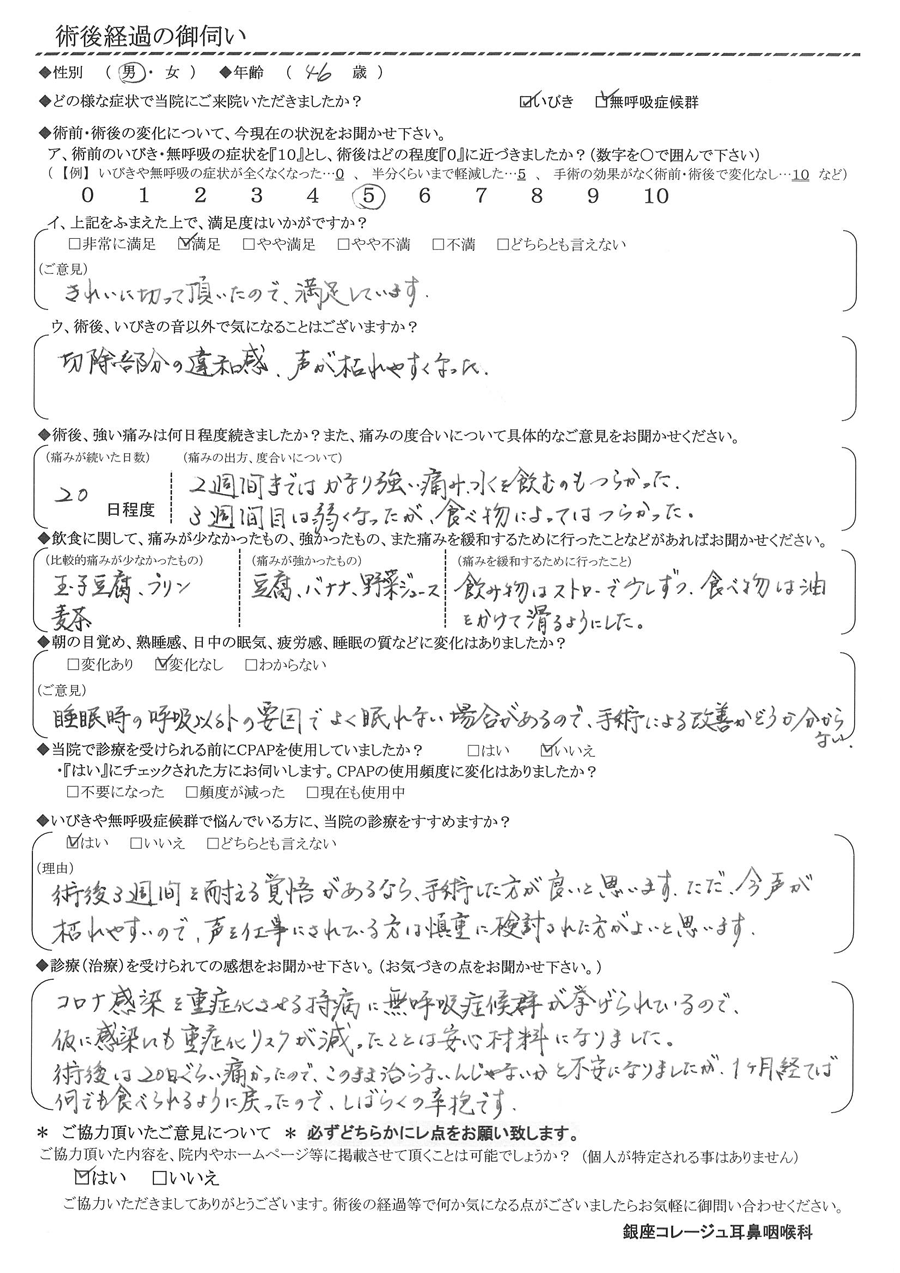 術後経過の御伺い
◆性別 （ 男・ 女 ） ◆年齢 （ 46 歳 ）
◆どの様な症状で当院にご来院いただきましたか？ ☑いびき ☑無呼吸症候群
◆術前・術後の変化について、今現在の状況をお聞かせ下さい。
ア、術前のいびき・無呼吸の症状を『10』とし、術後はどの程度『0』に近づきましたか？（数字を〇で囲んで下さい）
（ 【例】 いびきや無呼吸の症状が全くなくなった…0 、 半分くらいまで軽減した…5 、 手術の効果がなく術前・術後で変化なし…10 など）
0 1 2 3 4 5 6 7 8 9 10
イ、上記をふまえた上で、満足度はいかがですか？
□非常に満足 ☑満足 □やや満足 □やや不満 □不満 □どちらとも言えない
（ご意見）
きれいに切って頂いたので、満足しています.
ウ、術後、いびきの音以外で気になることはございますか？
切除部分の違和感、声が枯れやすくなった.
◆術後、強い痛みは何日程度続きましたか？また、痛みの度合いについて具体的なご意見をお聞かせください。
（痛みが続いた日数） （痛みの出方、度合いについて）
20 日程度 2週間まではかなり強い痛み.水を飲むのもつらかった.
3週間目は弱くなったが、食べ物によってはつらかった。
◆飲食に関して、痛みが少なかったもの、強かったもの、また痛みを緩和するために行ったことなどがあればお聞かせください。
（比較的痛みが少なかったもの） （痛みが強かったもの） （痛みを緩和するために行ったこと）
玉子豆腐、プリン 豆腐、バナナ、野菜ジュース 飲み物はストローで少しずつ. 食べ物は油
麦茶 をかけて滑るようにした。
◆朝の目覚め、熟睡感、日中の眠気、疲労感、睡眠の質などに変化はありましたか？
□変化あり ☑変化なし □わからない
（ご意見）
睡眠時の呼吸以外の要因でよく眠れない場合があるので、手術による改善かどうか分から
ない.
◆当院で診療を受けられる前にCPAPを使用していましたか？ □はい ☑いいえ
・『はい』にチェックされた方にお伺いします。CPAPの使用頻度に変化はありましたか？
□不要になった □頻度が減った □現在も使用中
◆いびきや無呼吸症候群で悩んでいる方に、当院の診療をすすめますか？
☑はい □いいえ □どちらとも言えない
（理由）
術後3週間を耐える覚悟があるなら、手術した方が良いと思います. ただ、今声が
枯れやすいので、声を仕事にされている方は慎重に検討された方がよいと思います.
◆診療（治療）を受けられての感想をお聞かせ下さい。（お気づきの点をお聞かせ下さい。）
コロナ感染を重症化させる持病に無呼吸症候群が挙げられているので、
仮に感染しても重症化リスクが減ったことは安心材料になりました。
術後は20日ぐらい痛かったので、このまま治らないんじゃないかと不安になりましたが、1ヶ月経てば
何でも食べられるように戻ったので、しばらくの辛抱です.
＊ ご協力頂いたご意見について ＊ 必ずどちらかにレ点をお願い致します。
ご協力頂いた内容を、院内やホームページ等に掲載させて頂くことは可能でしょうか？ （個人が特定される事はありません）
☑はい □いいえ
ご協力いただきましてありがとうございます。術後の経過等で何か気になる点がございましたらお気軽に御問い合わせください。
銀座コレージュ耳鼻咽喉科